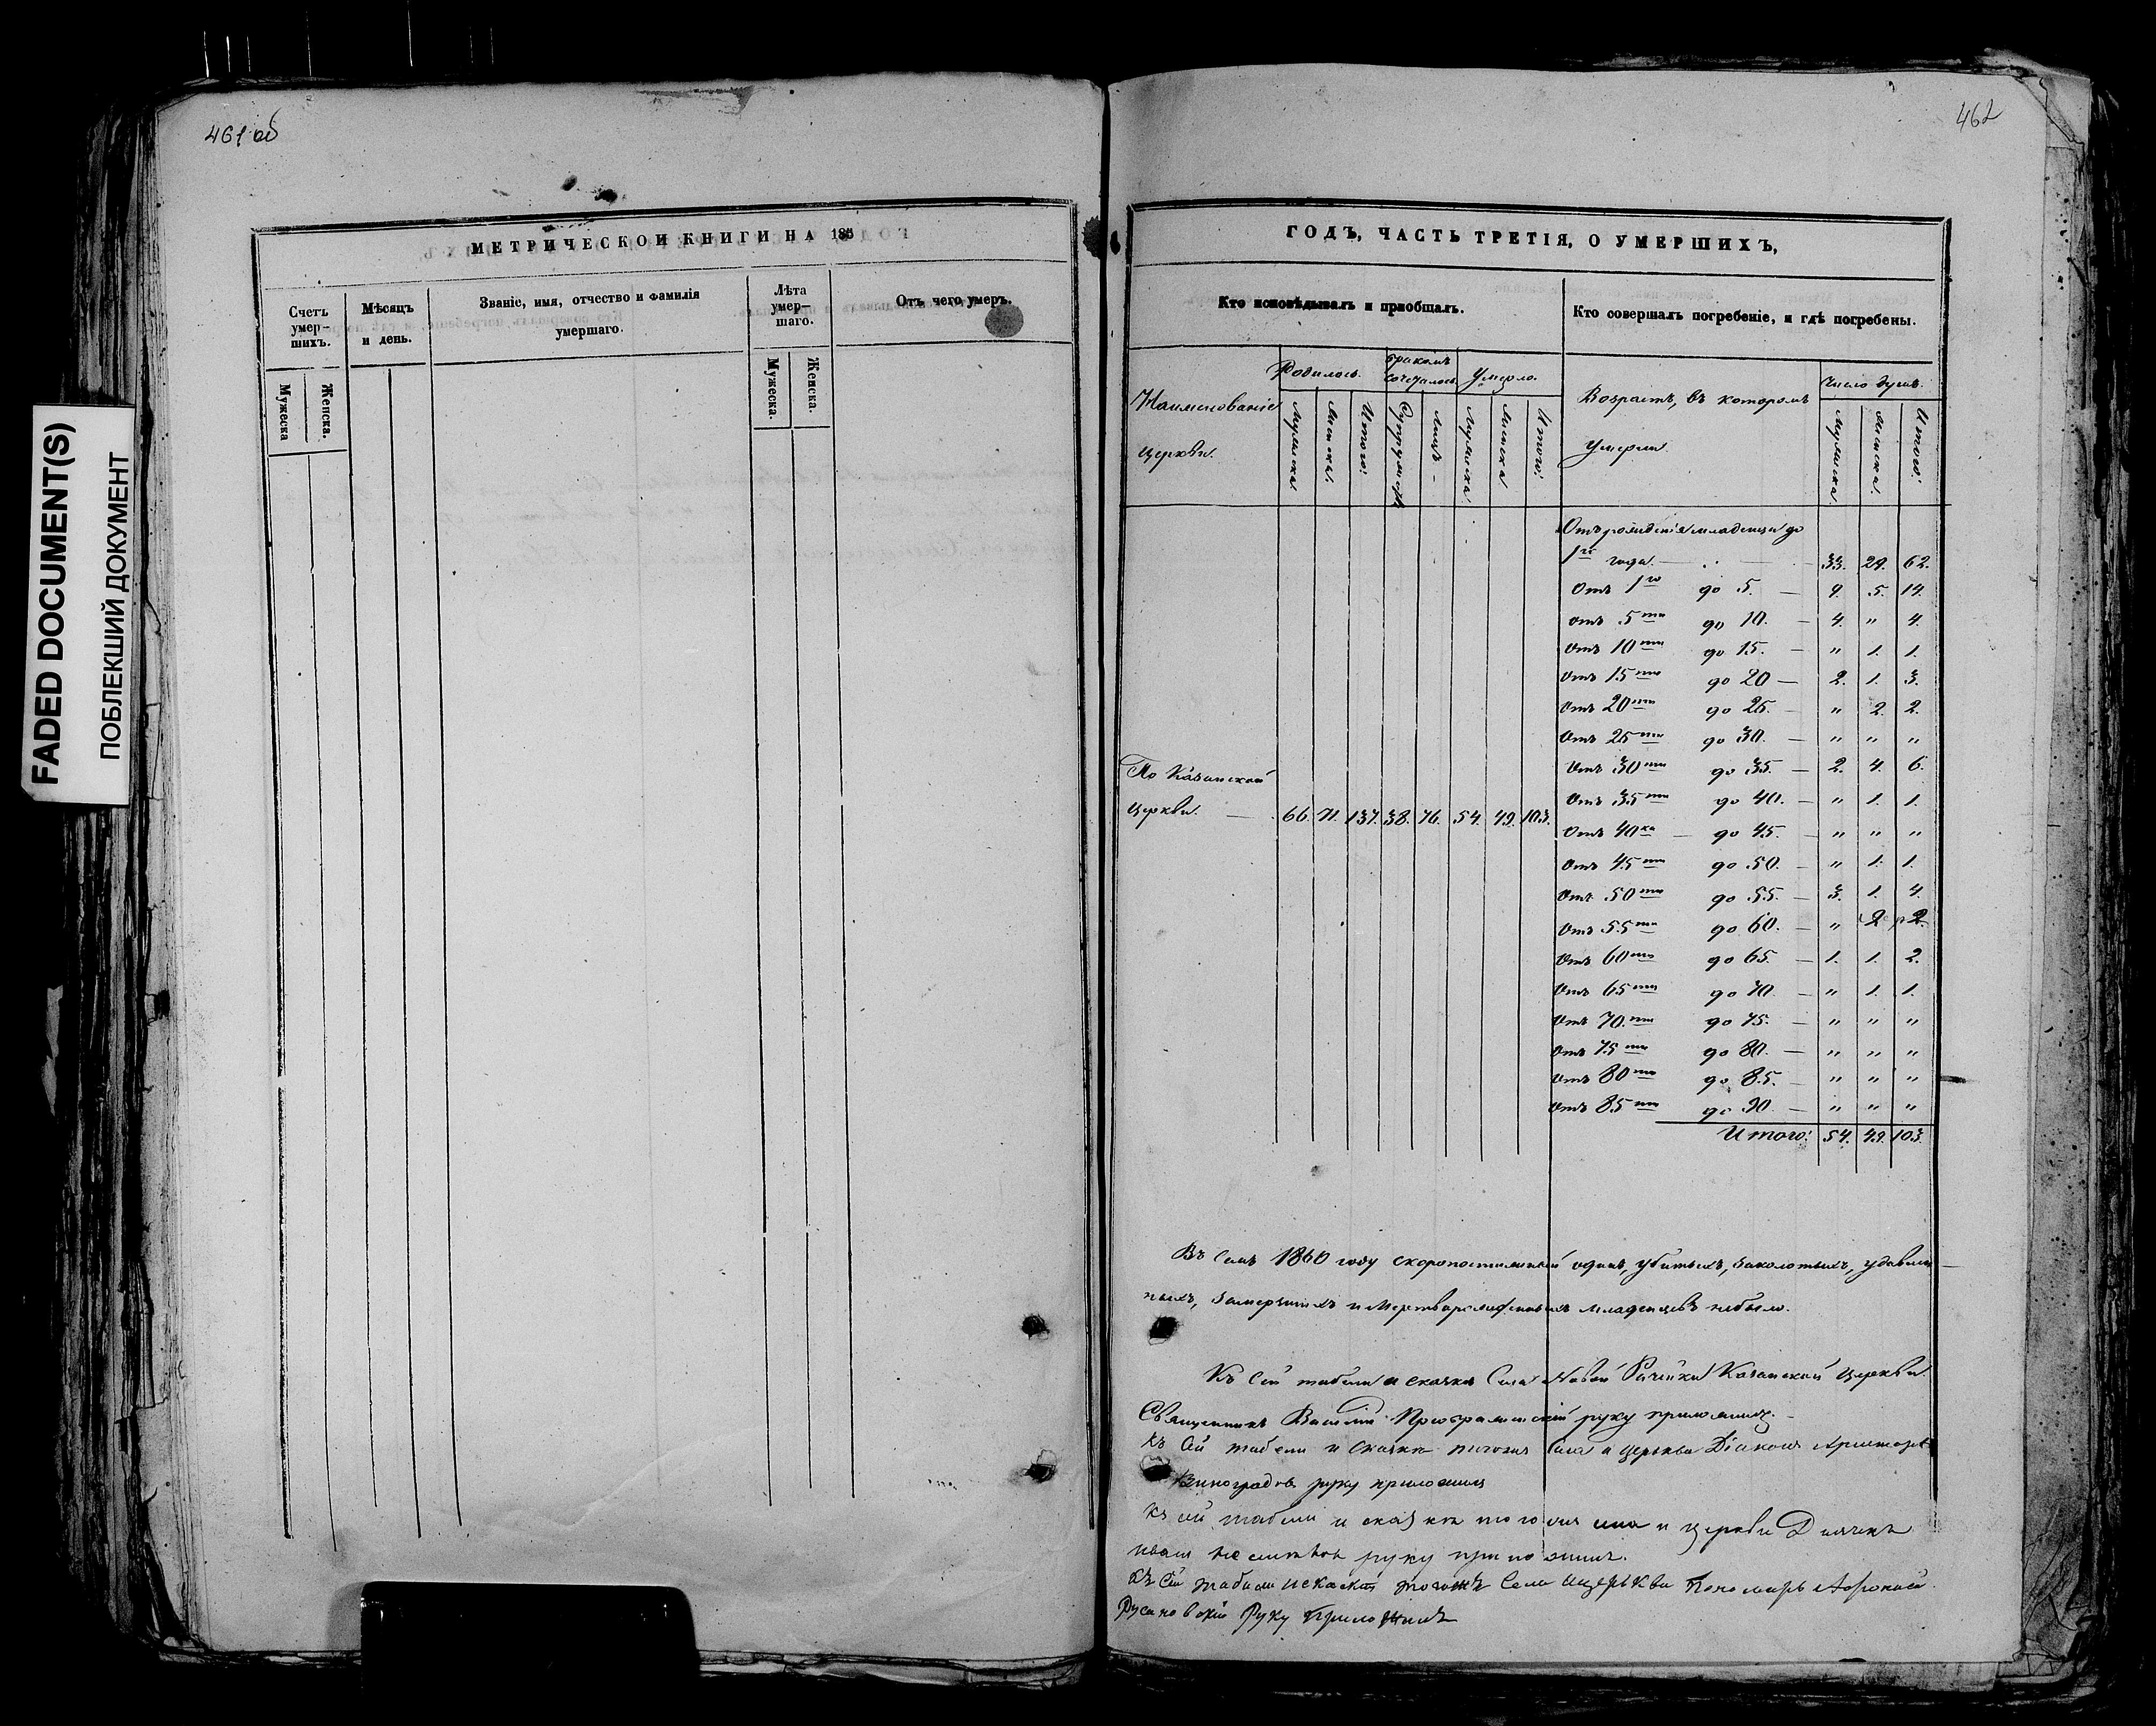 FADED DOCUMENT(S)
ПОБЛЕКШИЙ ДОКУМЕНТ
461 об
МЕТРИЧЕСКОЙ КНИГИ НА 185
Счетъ умер-шихъ.
Мужеска
Женска.
Мѣсяцъ и день.
Званіе, имя, отчество и фамилія умершаго.
Лѣта умер-шаго.
Мужеска.
Женска.
Отъ чего умеръ.
462
ГОДЪ, ЧАСТЬ ТРЕТІЯ, О УМЕРШИХЪ,
Кто исповѣдывалъ и пріобщалъ.
Кто совершалъ погребеніе, и гдѣ погребены.
Наименованіе церкви.
Родилось.
Мужеска
Женска.
Итого:
Бракомъ сочеталось
Супружествъ
Лицъ
Умерло.
Мужеска
Женска
Итого:
Возрастъ, въ которомъ умерли.
Число душъ.
Мужеска
Женска.
Итого:
По Казанской
церкви. — 66. 71. 137. 38. 76. 54. 49. 103.
Отъ рожденія младенци до
1го года. — 33. 29. 62.
Отъ 1го до 5. — 9. 5. 14.
Отъ 5ти до 10. — 4. " 4.
Отъ 10ти до 15. — " 1. 1.
Отъ 15ти до 20 — 2. 1. 3.
Отъ 20ти до 25. — " 2. 2.
Отъ 25ти до 30. — " " "
Отъ 30ти до 35. — 2. 4. 6.
Отъ 35ти до 40. — " 1. 1.
Отъ 40ка — до 45. — " " "
Отъ 45ти до 50. — " 1. 1.
Отъ 50ти до 55. — 3. 1. 4.
Отъ 55ти до 60. — " 2 2.
Отъ 60ти до 65. — 1. 1. 2.
Отъ 65ти до 70. — " 1. 1.
Отъ 70.ти до 75. — " " "
Отъ 75ти до 80. — " " "
Отъ 80ти до 85. — " " "
Отъ 85ти до 90. — " " "
Итого: 54. 49. 103.
Въ семъ 1860 году скоропостижный одинъ, убитыхъ, заколотыхъ, удавлен
ныхъ, замерзшихъ и мертворожденныхъ младенцевъ небыло.
Къ сей табели и сказкѣ Села Новой Рачейки Казанской Церкви
Священникъ Василій Преображенскій руку приложилъ. —
Къ сей табели и сказкѣ тогожъ Села и церкви Діаконъ
Виноградовъ руку приложилъ
Къ сей табели и сказкѣ тогожъ села и церкви Дьячекъ
Иванъ руку приложилъ.
Къ сей табели искаски тогожъ Села ицерькви Пономарь
Русановскій Руку Приложилъ